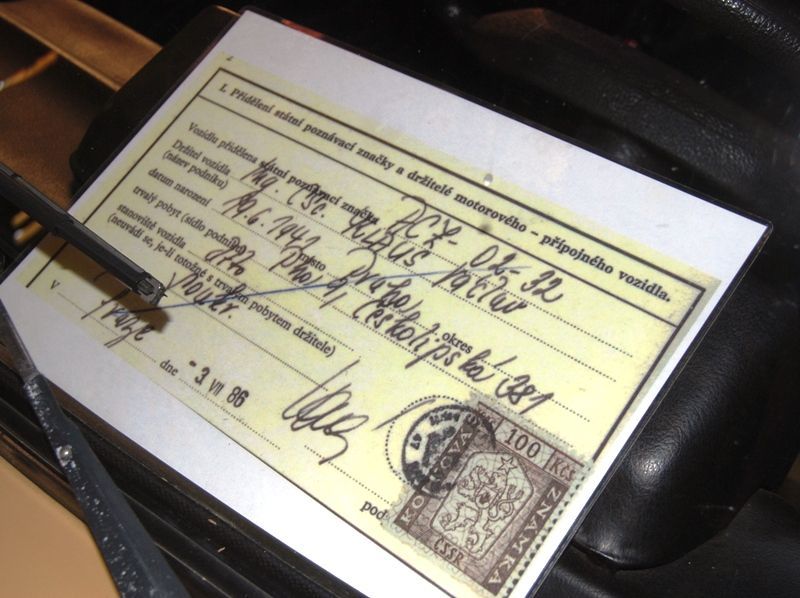 I. Přidělení státní poznávací značky a držitelé motorového – přípojného vozidla.
Vozidlu přidělena státní poznávací značka ACZ-02-32
Držitel vozidla Ing. CSc. KLAUS Václav
(název podniku)
datum narození 19. 6. 1941 místo Praha okres
trvalý pobyt (sídlo podniku) Pha 9, Českolipská 381
stanoviště vozidla
(neuvádí se, je-li totožné s trvalým pobytem držitele)
v Praze
dne -3 VII 86
pod
KOLKOVÁ ZNÁMKA
Kčs 100 Kčs
ČSSR